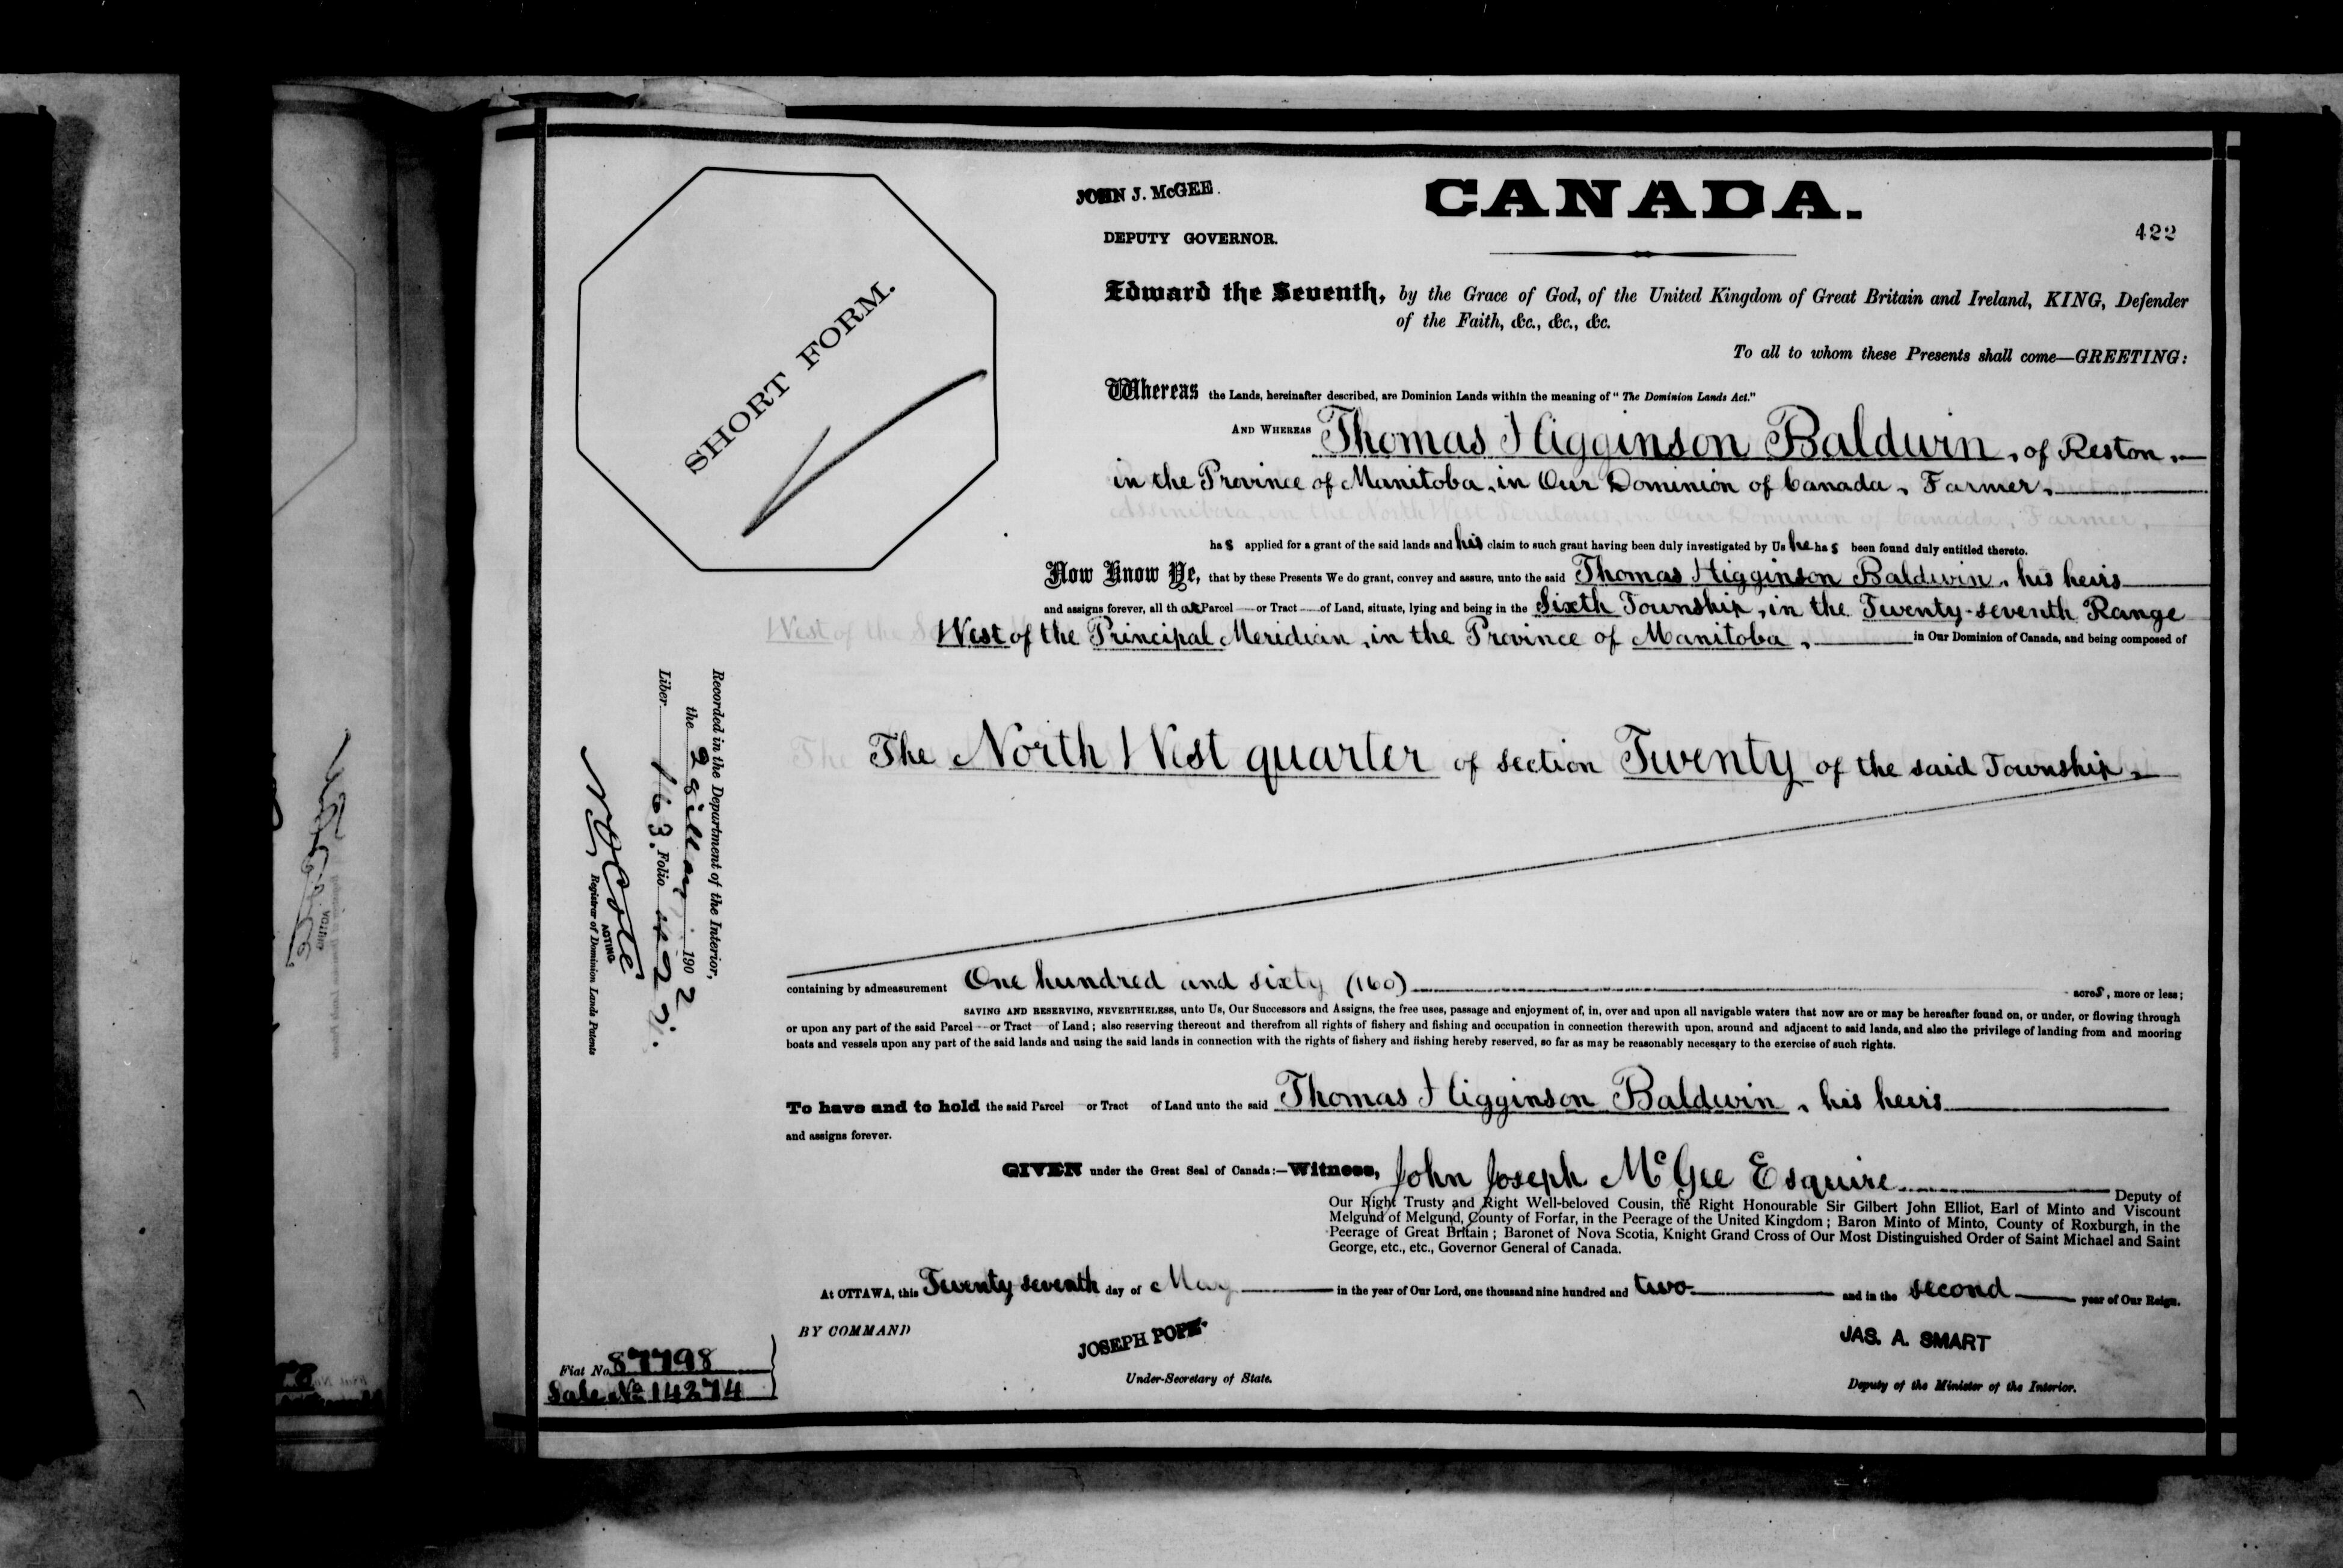 JOHN J. McGEE.
DEPUTY GOVERNOR.
CANADA.
422
SHORT FORM.
Edward the Seventh, by the Grace of God, of the United Kingdom of Great Britain and Ireland, KING, Defender
of the Faith, &c., &c., &c.
To all to whom these Presents shall come—GREETING:
Whereas the Lands, hereinafter described, are Dominion Lands within the meaning of "The Dominion Lands Act."
AND WHEREAS Thomas Higginson Baldwin, of Reston,
in the Province of Manitoba, in Our Dominion of Canada, Farmer,
has applied for a grant of the said lands and his claim to such grant having been duly investigated by Us he has been found duly entitled thereto.
Now Know Ye, that by these Presents We do grant, convey and assure, unto the said Thomas Higginson Baldwin, his heirs
and assigns forever, all that Parcel or Tract of Land, situate, lying and being in the Sixth Township, in the Twenty-seventh Range
West of the Principal Meridian, in the Province of Manitoba, in Our Dominion of Canada, and being composed of
The North West quarter of section Twenty of the said Township.
containing by admeasurement One hundred and sixty (160) acres, more or less;
SAVING AND RESERVING, NEVERTHELESS, unto Us, Our Successors and Assigns, the free uses, passage and enjoyment of, in, over and upon all navigable waters that now are or may be hereafter found on, or under, or flowing through
or upon any part of the said Parcel or Tract of Land; also reserving thereout and therefrom all rights of fishery and fishing and occupation in connection therewith upon, around and adjacent to said lands, and also the privilege of landing from and mooring
boats and vessels upon any part of the said lands and using the said lands in connection with the rights of fishery and fishing hereby reserved, so far as may be reasonably necessary to the exercise of such rights.
To have and to hold the said Parcel or Tract of Land unto the said Thomas Higginson Baldwin, his heirs
and assigns forever.
GIVEN under the Great Seal of Canada:—Witness, John Joseph McGee Esquire Deputy of
Our Right Trusty and Right Well-beloved Cousin, the Right Honourable Sir Gilbert John Elliot, Earl of Minto and Viscount
Melgund of Melgund, County of Forfar, in the Peerage of the United Kingdom; Baron Minto of Minto, County of Roxburgh, in the
Peerage of Great Britain; Baronet of Nova Scotia, Knight Grand Cross of Our Most Distinguished Order of Saint Michael and Saint
George, etc., etc., Governor General of Canada.
At OTTAWA, this Twenty seventh day of May in the year of Our Lord, one thousand nine hundred and two and in the second year of Our Reign.
BY COMMAND
JOSEPH POPE
Under-Secretary of State.
JAS. A. SMART
Deputy of the Minister of the Interior.
Fiat No 87798
Sale No 14274
Recorded in the Department of the Interior,
the 28th May 1902
Liber 163. Folio 422.
N O Coté
ACTING
Registrar of Dominion Lands Patents